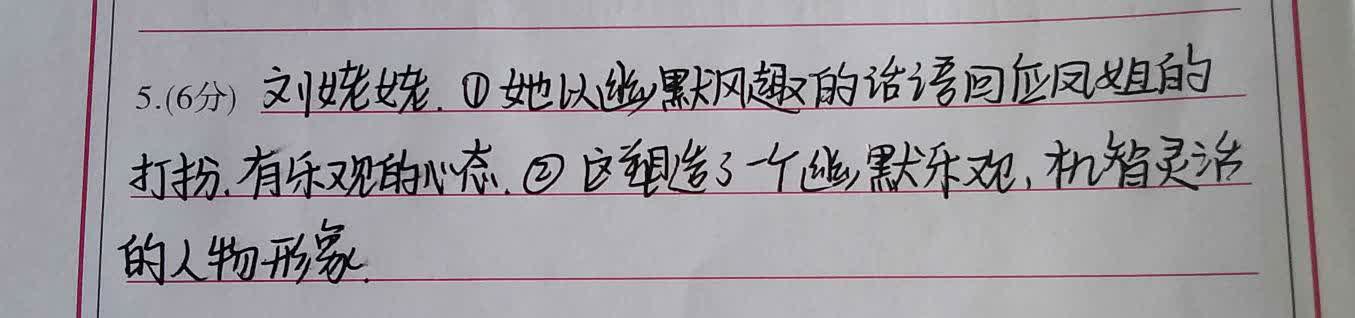 5.(6分) 刘姥姥.①她以幽默风趣的话语回应凤姐的
打扮.有乐观的心态.②这塑造了一个幽默乐观,机智灵活
的人物形象.